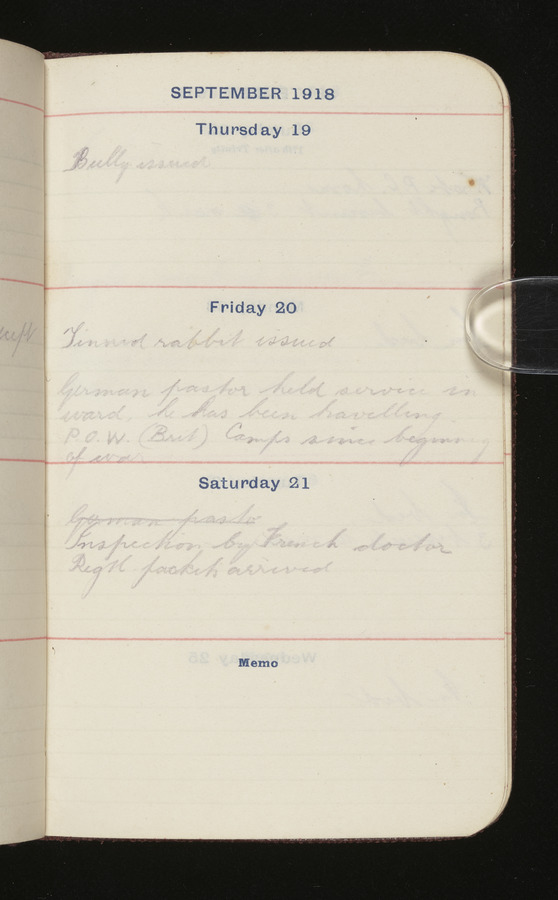 SEPTEMBER 1918
Thursday 19
Bully issued
Friday 20
Tinned rabbit issued
German pastor held service in
ward, he has been travelling
P.O.W. (Brit) Camps since beginning
of war
Saturday 21
German pasto
Inspection by French doctor
Regtl packets arrived
Memo